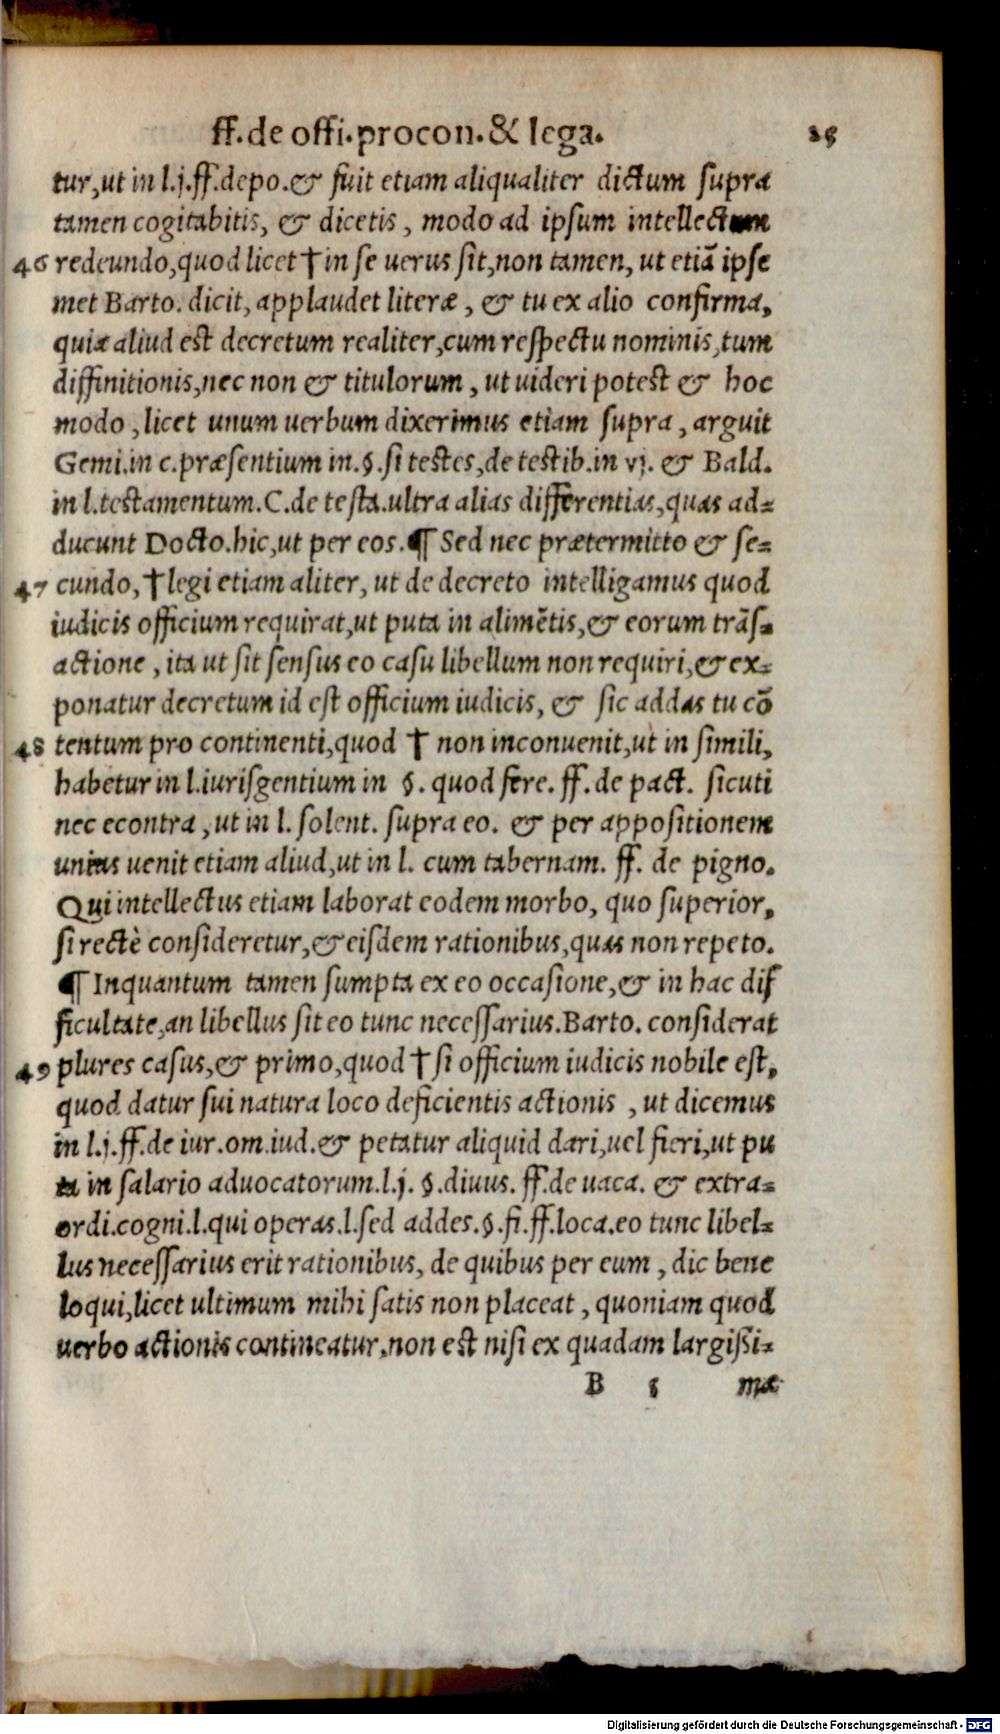 ff. de offi. procon. & lega. 25
tur, ut in l.j. ff. depo. & fuit etiam aliqualiter dictum supra
tamen cogitabitis, & dicetis, modo ad ipsum intellectum
46 redeundo, quod licet † in se uerus sit, non tamen, ut etiā ipse
met Barto. dicit, applaudet literæ, & tu ex alio confirma,
quia aliud est decretum realiter, cum respectu nominis, tum
diffinitionis, nec non & titulorum, ut uideri potest & hoc
modo, licet unum uerbum dixerimus etiam supra, arguit
Gemi. in c. præsentium in. §. si testes, de testib. in vj. & Bald.
in l. testamentum. C. de testa. ultra alias differentias, quas ad-
ducunt Docto. hic, ut per eos. ¶ Sed nec prætermitto & se-
47 cundo, † legi etiam aliter, ut de decreto intelligamus quod
iudicis officium requirat, ut puta in alimētis, & eorum trās-
actione, ita ut sit sensus eo casu libellum non requiri, & ex-
ponatur decretum id est officium iudicis, & sic addas tu cō
48 tentum pro continenti, quod † non inconuenit, ut in simili,
habetur in l. iurisgentium in §. quod fere. ff. de pact. sicuti
nec econtra, ut in l. solent. supra eo. & per appositionem
unius uenit etiam aliud, ut in l. cum tabernam. ff. de pigno.
Qui intellectus etiam laborat eodem morbo, quo superior,
si rectè consideretur, & eisdem rationibus, quas non repeto.
¶ Inquantum tamen sumpta ex eo occasione, & in hac dif
ficultate, an libellus sit eo tunc necessarius. Barto. considerat
49 plures casus, & primo, quod † si officium iudicis nobile est,
quod datur sui natura loco deficientis actionis, ut dicemus
in l.j. ff. de iur. om. iud. & petatur aliquid dari, uel fieri, ut pu
ta in salario aduocatorum. l.j. §. diuus. ff. de uaca. & extra-
ordi. cogni. l. qui operas. l. sed addes. §. fi. ff. loca. eo tunc libel-
lus necessarius erit rationibus, de quibus per eum, dic bene
loqui, licet ultimum mihi satis non placeat, quoniam quod
uerbo actionis contineatur, non est nisi ex quadam largissi-
B 5 mæ
Digitalisierung gefördert durch die Deutsche Forschungsgemeinschaft - DFG